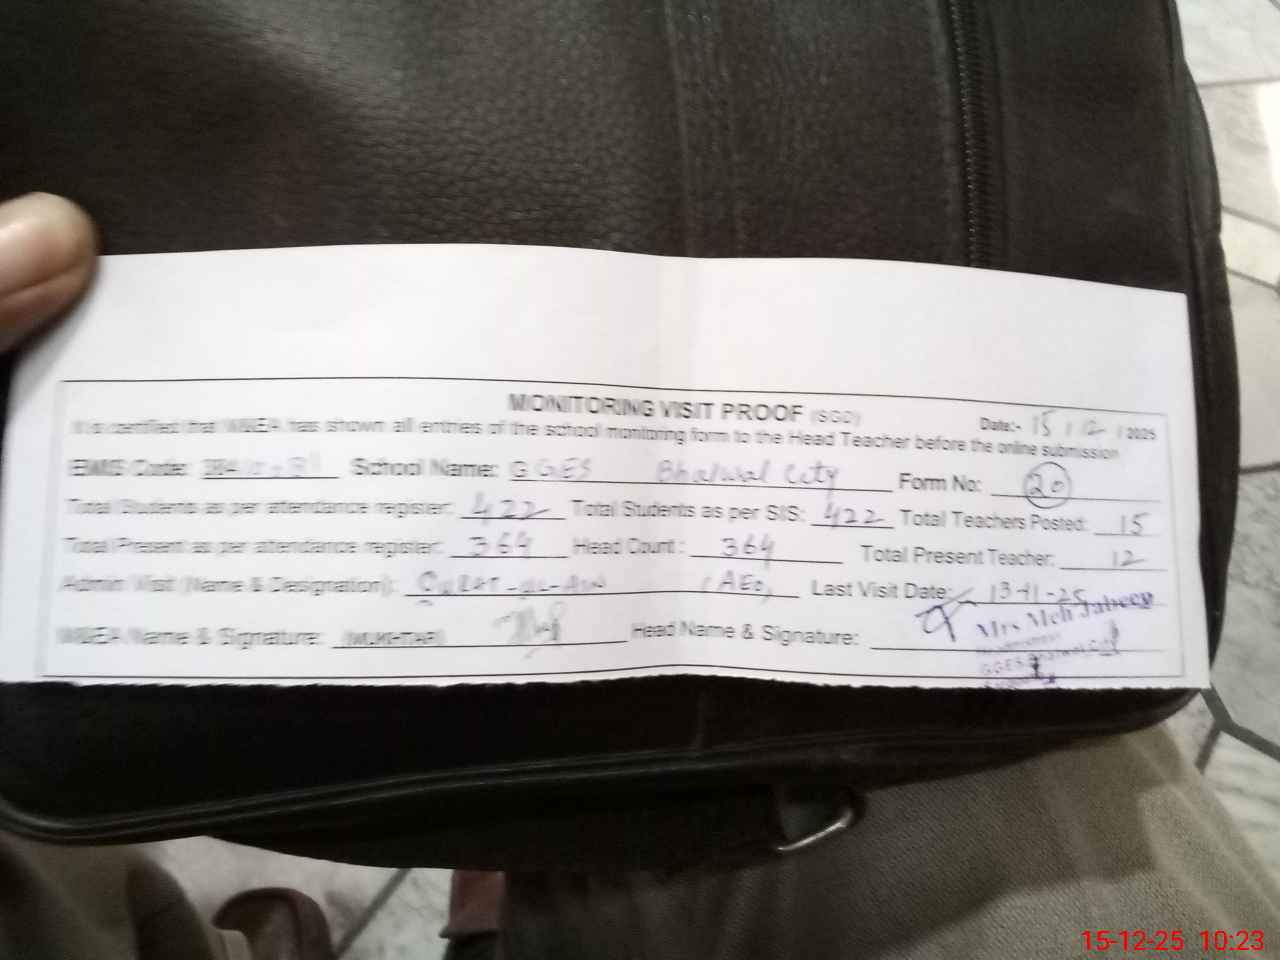 MONITORING VISIT PROOF (SGD)
Date:- 15 / 12 / 2025
It is certified that MEA has shown all entries of the school monitoring form to the Head Teacher before the online submission
EMIS Code: School Name: GGES Bhalwal City Form No: 20
Total Students as per attendance register: 422 Total Students as per SIS: 422 Total Teachers Posted: 15
Total Present as per attendance register: 364 Head Count: 364 Total Present Teacher: 12
Admin Visit (Name & Designation): (AEO) Last Visit Date: 13-11-25
MEA Name & Signature: (MUKHTAR) Head Name & Signature:
Mrs
GGES Bhalwal City
15-12-25 10:23